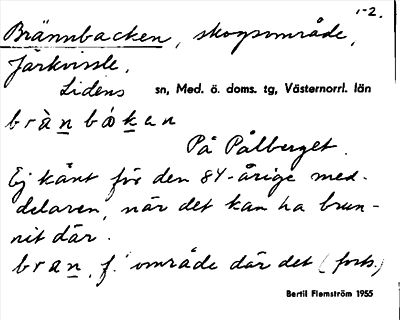 1-2.
Brännbacken, skogsområde,
Järkvissle,
Lidens sn, Med. ö. doms. tg, Västernorrl. län
bràn bákan
På Pålberget.
Ej känt för den 84-årige med-
delaren, när det kan ha brun-
nit där.
bran, f. område där det (forts.)
Bertil Flemström 1955